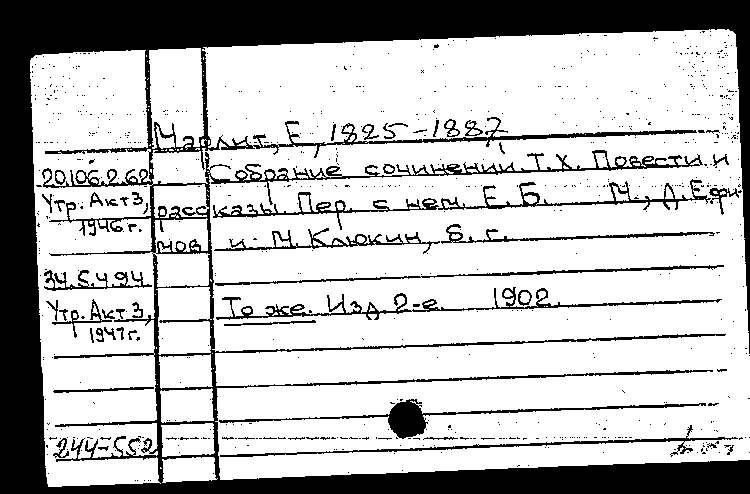 Марлит, Е., 1825-1887
20.106.2.62 Собрание сочинений. Т. X. Повести и
Утр. Акт 3, рассказы. Пер. с нем. Е. Б. М., Д. Ефи-
1946 г. мов и М. Клюкин, б. г.
34.5.4.94
Утр. Акт 3, То же. Изд. 2-е. 1902.
1947г.
244-552